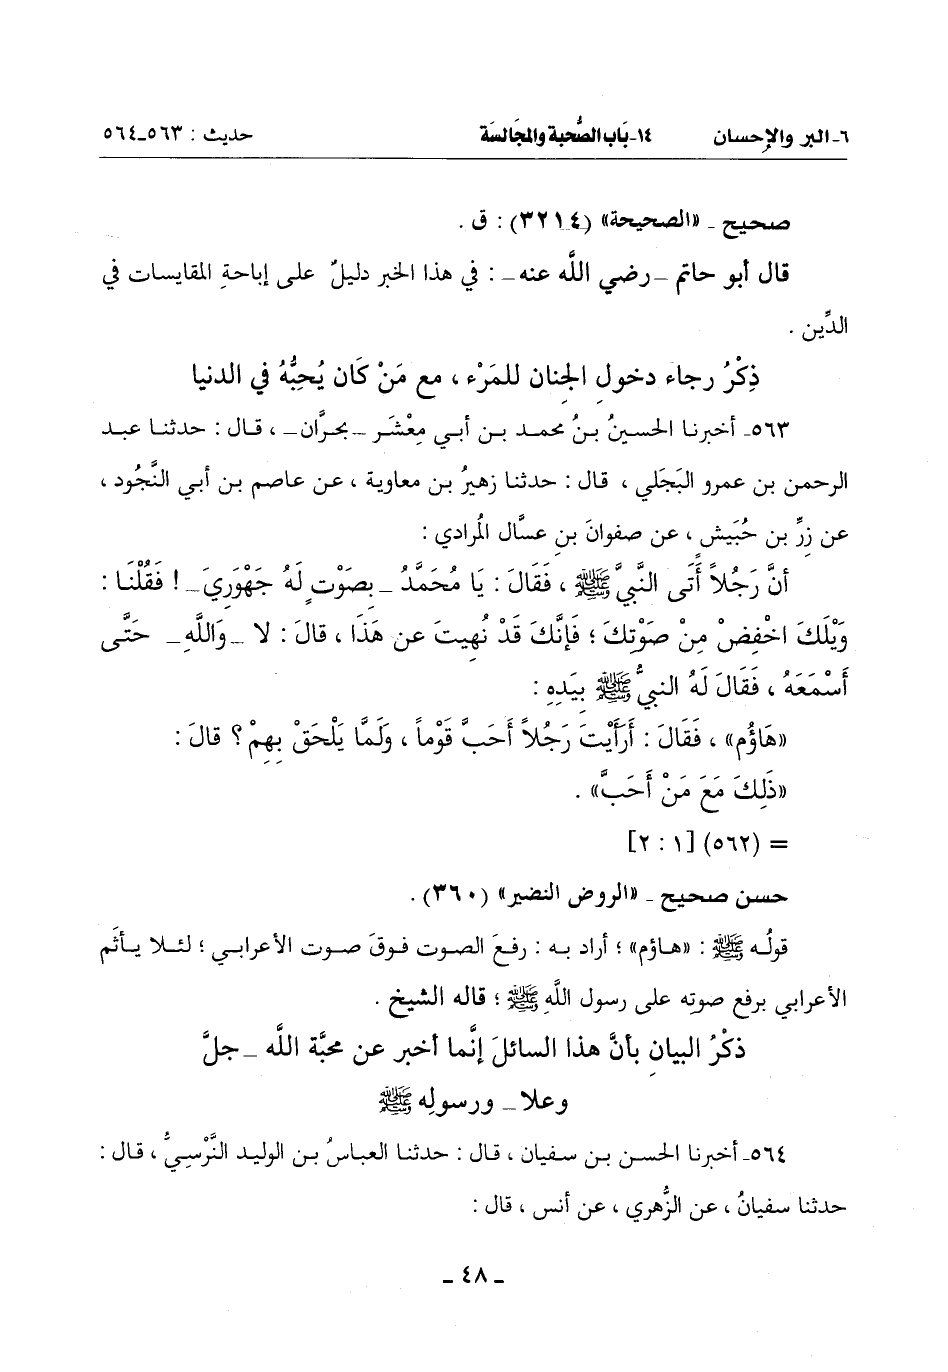 ٦- البر والإحسان ١٤-بَاب الصُّحبة والمجَالسَة حديث : ٥٦٣-٥٦٤
صحيح - «الصحيحة» (٣٢١٤) : ق .
قال أبو حاتم -رضي اللَّه عنه- : في هذا الخبر دليلٌ على إباحةِ المقايسات في
الدِّين .
ذِكْرُ رجاء دخولِ الجنان للمَرْء ، مع مَنْ كَان يُحِبُّهُ في الدنيا
٥٦٣- أخبرنا الحسينُ بنُ محمد بن أبي مِعْشَر -بحرَّان- ، قال : حدثنا عبد
الرحمن بن عمرو البَجَلي ، قال : حدثنا زهيرُ بن معاوية ، عن عاصم بن أبي النَّجُود ،
عن زِرِّ بن حُبَيش ، عن صفوانَ بنِ عسَّال المُرادي :
أنَّ رَجُلاً أَتى النَّبيَّ ﷺ ، فَقَالَ : يَا مُحَمَّدُ -بِصَوْتٍ لَهُ جَهْوَرِيّ- ! فَقُلْنَا :
وَيْلَكَ اخْفِضْ مِنْ صَوْتِكَ ؛ فَإنَّكَ قَدْ نُهِيتَ عن هَذَا ، قالَ : لا -وَاللَّهِ- حَتَّى
أَسْمَعَهُ ، فَقَالَ لَهُ النبيُّ ﷺ بِيَدِهِ :
«هَاؤُم» ، فَقَالَ : أَرَأَيْتَ رَجُلاً أَحَبَّ قَوْماً ، وَلَمَّا يَلْحَقْ بِهِمْ ؟ قالَ :
«ذَلِكَ مَعَ مَنْ أَحَبَّ» .
= (٥٦٢) [٢ : ١]
حسن صحيح - «الروض النضير» (٣٦٠) .
قولُه ﷺ : «هاؤم» ؛ أراد به : رفعَ الصوت فوقَ صوت الأعرابي ؛ لئلا يأثَم
الأعرابي برفع صوتِه على رسول اللَّهِ ﷺ ؛ قاله الشيخ .
ذكْرُ البيان بأنَّ هذا السائلَ إنَّما أخبر عن محبَّة اللَّه -جلَّ
وعلا- ورسولِه ﷺ
٥٦٤- أخبرنا الحسن بن سفيان ، قال : حدثنا العباسُ بن الوليد النَّرْسِيُّ ، قال :
حدثنا سفيانُ ، عن الزُّهري ، عن أنس ، قال :
- ٤٨ -